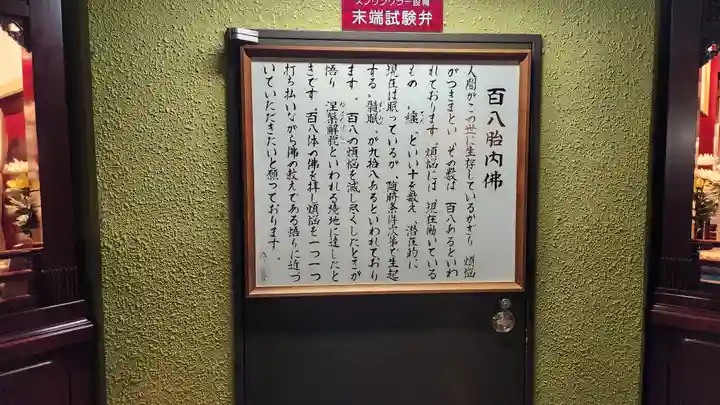 スプリンクラー設備
末端試験弁
百八胎内佛
人間がこの世に生存しているかぎり 煩悩
がつきまとい その数は 百八あるといわ
れております。煩悩には 現在働いている
もの、纏、といい十を数え、潜在的に
現在は眠っているが、随時条件次第で生起
する、随眠、が九拾八あるといわれており
ます。百八の煩悩を滅し尽くしたときが
悟り 涅槃解脱といわれる境地に達したと
きです。百八体の佛を拝し煩悩を一つ一つ
打ち払いながら佛の教えである悟りに近づ
いていただきたいと願っております。